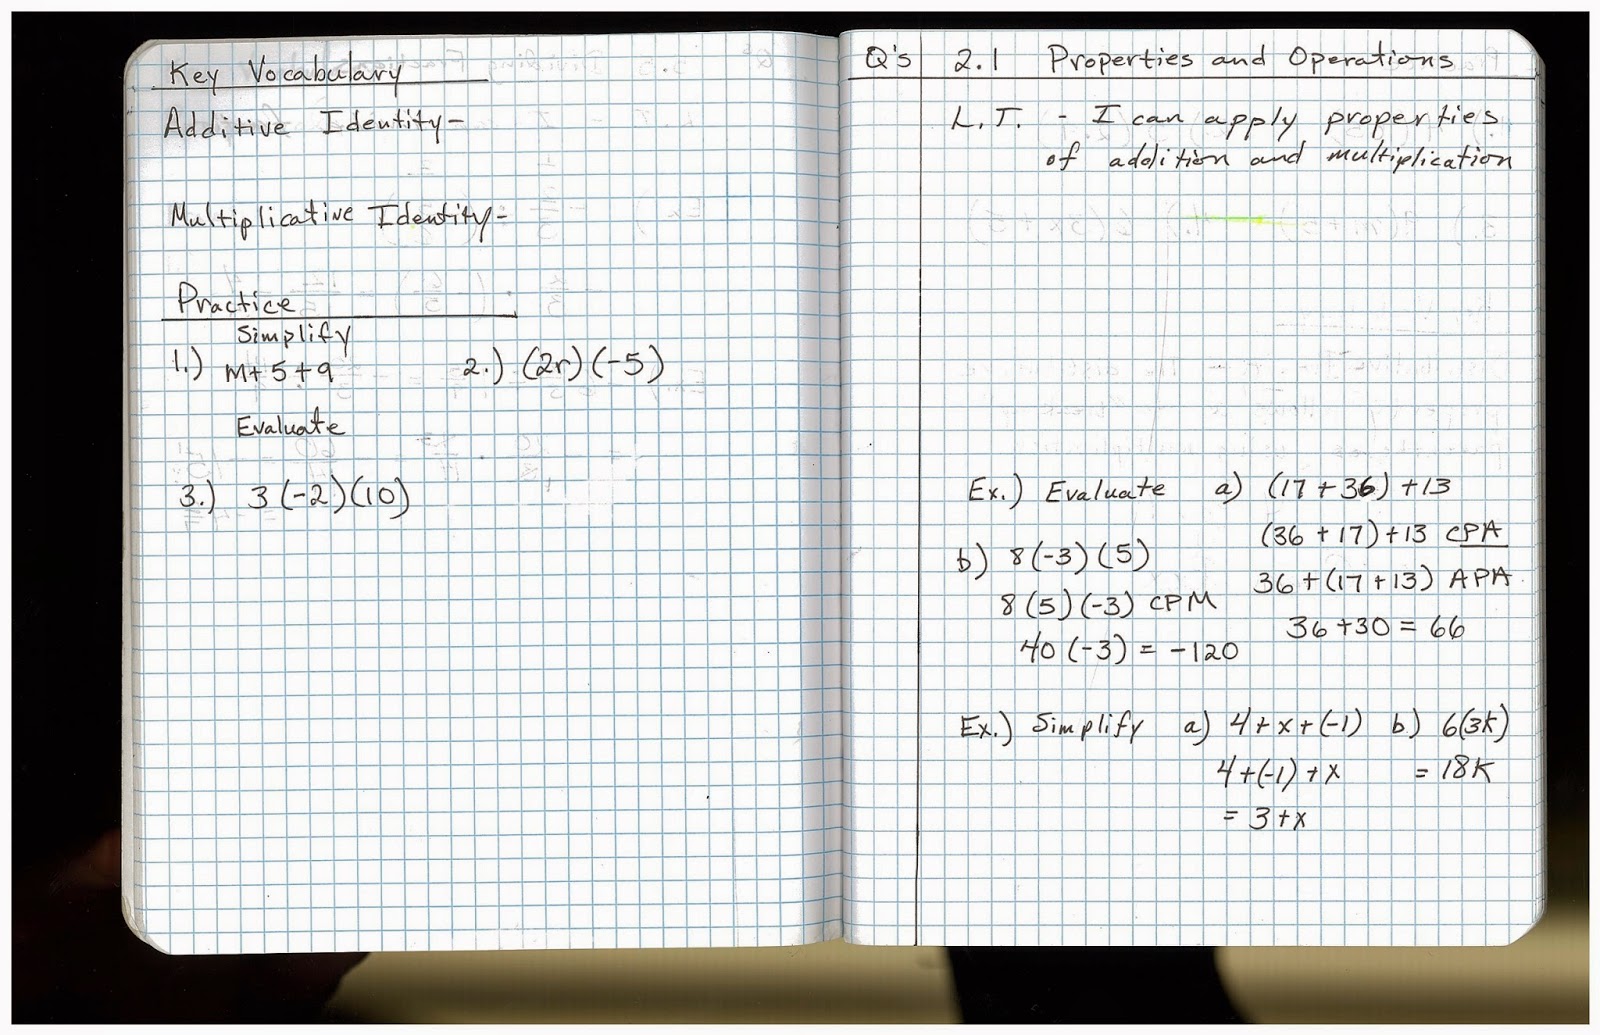 Key Vocabulary
Additive Identity-
Multiplicative Identity-
Practice
Simplify
1.) m+5+9 2.) (2r)(-5)
Evaluate
3.) 3(-2)(10)
Q's 2.1 Properties and Operations
L.T. - I can apply properties
of addition and multiplication
Ex.) Evaluate a) (17+36)+13
(36+17)+13 CPA
b) 8(-3)(5)
36+(17+13) APA
8(5)(-3) CPM
36+30=66
40(-3) = -120
Ex.) Simplify a) 4+x+(-1) b.) 6(3k)
4+(-1)+x = 18k
= 3+x